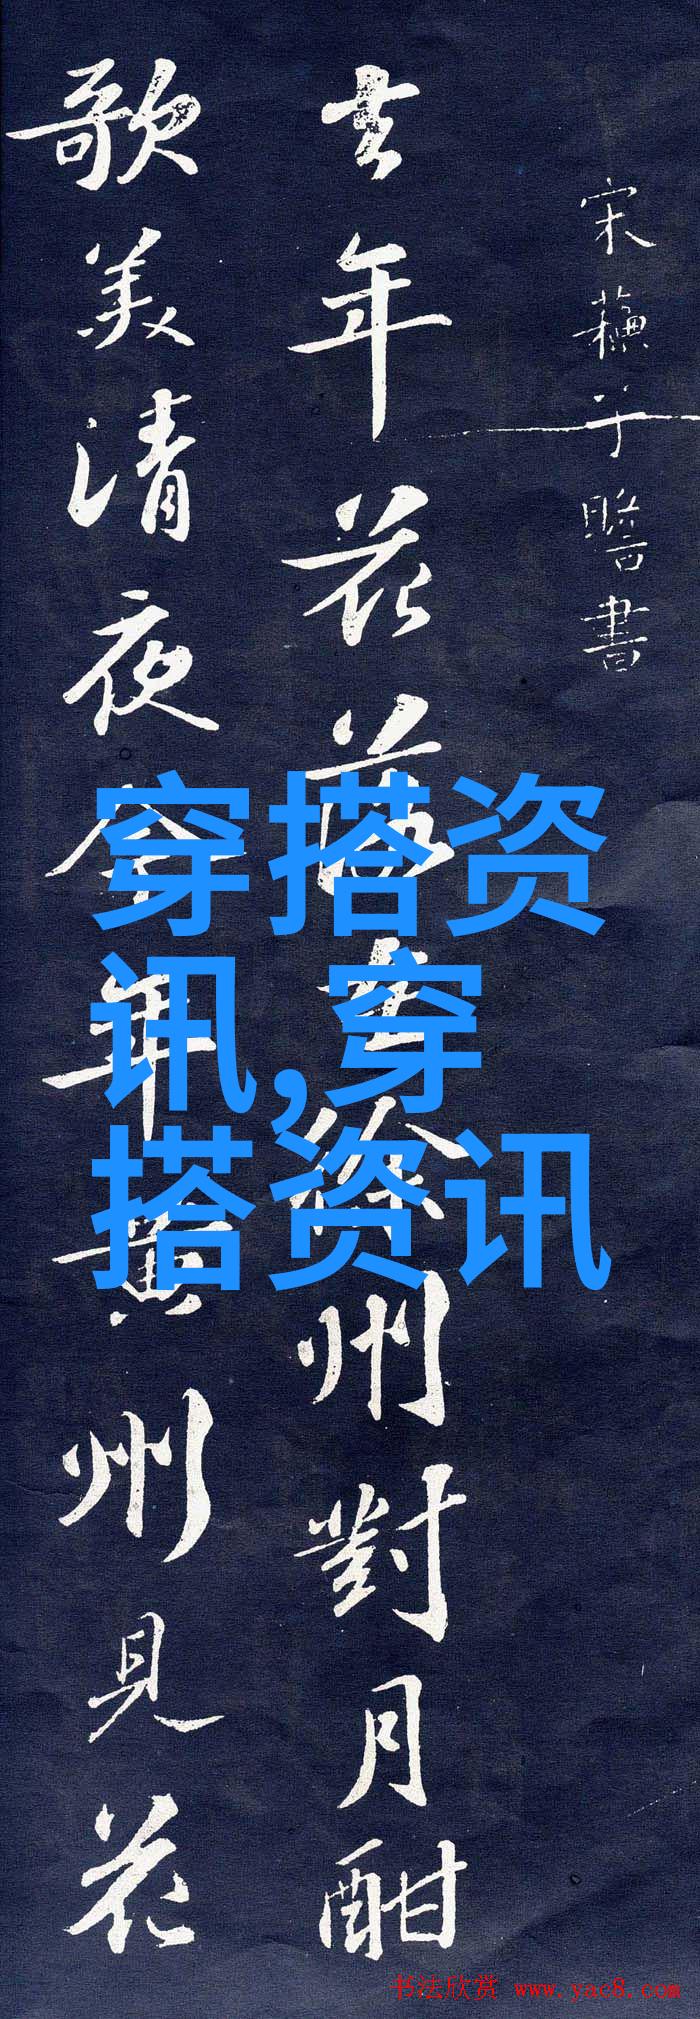 宋蘇子瞻書
去年花落在徐州對月酣
歌美清夜今年黃州見花
穿搭资
讯,穿
搭资讯
书法欣赏 www.yac8.com